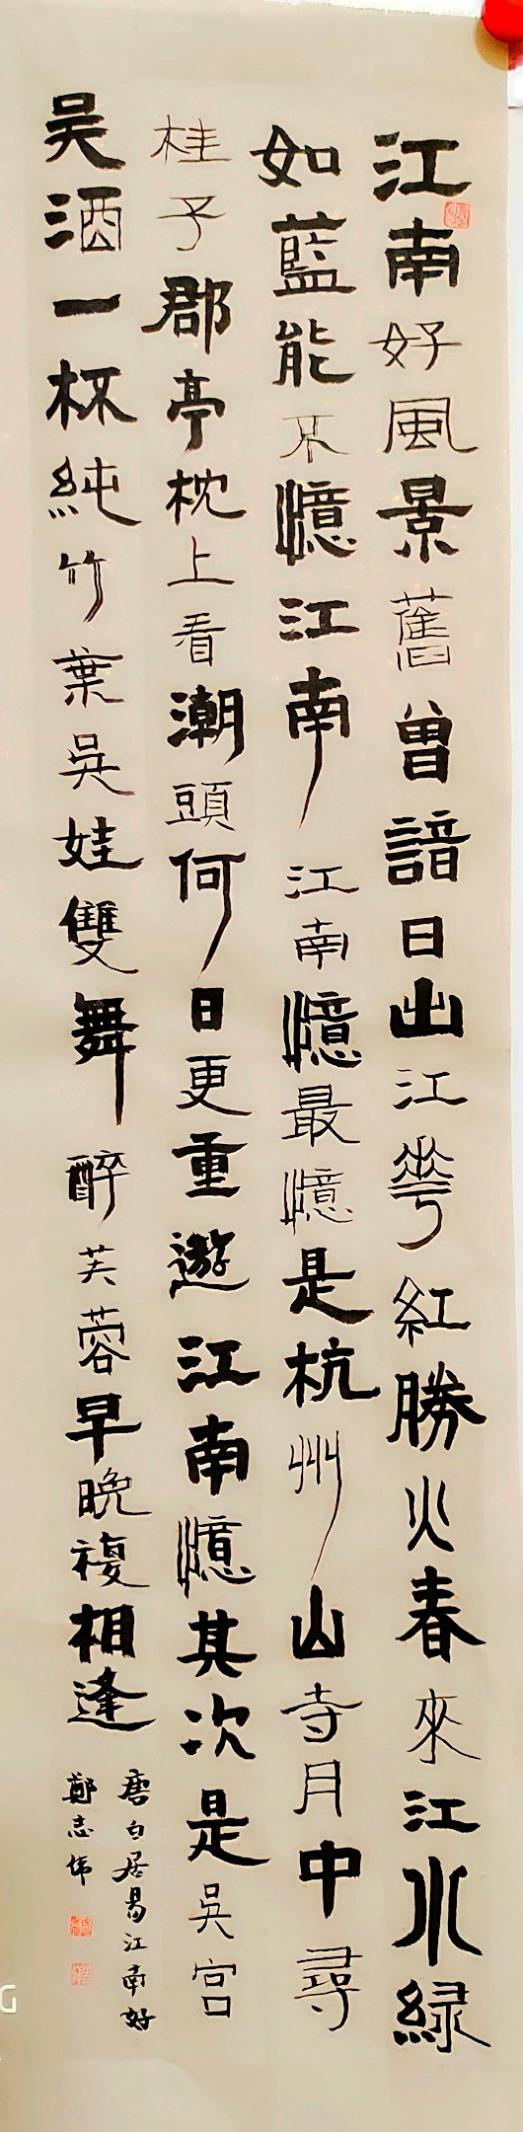 江南好風景舊曾諳日出江花紅勝火春來江水緑
如藍能不憶江南江南憶最憶是杭州山寺月中尋
桂子郡亭枕上看潮頭何日更重遊江南憶其次是吳宮
吴酒一杯純竹葉吳娃雙舞醉芙蓉早晚複相逢
唐白居易江南好
鄭志偉
G